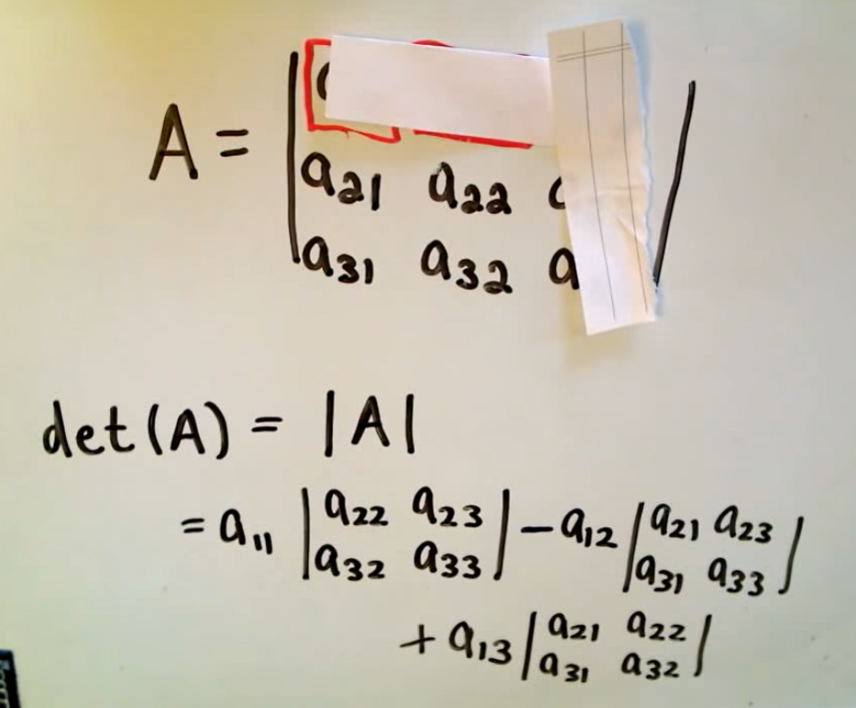 A =
a21 a22
a31 a32 a
det(A) = |A|
= a11 |a22 a23| - a12 |a21 a23|
|a32 a33| |a31 a33|
+ a13 |a21 a22|
|a31 a32|